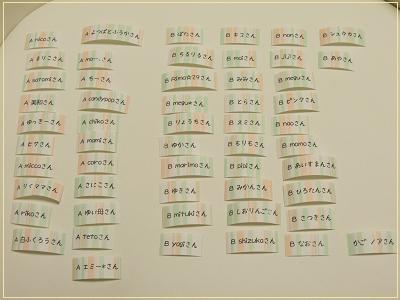 A nicoさん
A まりこさん
A satomiさん
A 美和さん
A ゆっきーさん
A ヒワさん
A miccoさん
A りくママさん
A rikoさん
A 白ふくろうさん
A よつばとふうかさん
A みーさん
A ちーさん
A candypopさん
A chikoさん
A mamiさん
A cocoさん
A さにこさん
A ゆい母さん
A TETOさん
A エミー*さん
B ぱむさん
B ちるりるさん
B rimo929さん
B megu*さん
B りょうちさん
B ゆかさん
B marimoさん
B ゆきさん
B mitukiさん
B yogiさん
B キコさん
B maiさん
B みみさん
B とらさん
B スミさん
B ちりもさん
B pipiさん
B みかんさん
B しおりんごさん
B shizukaさん
B nonさん
B ぷぷさん
B meguさん
B ピンクさん
B naoさん
B momoさん
B あいすまんさん
B ひろたんさん
B さつきさん
B なおさん
B シュウカさん
B あやさん
かご ノアさん